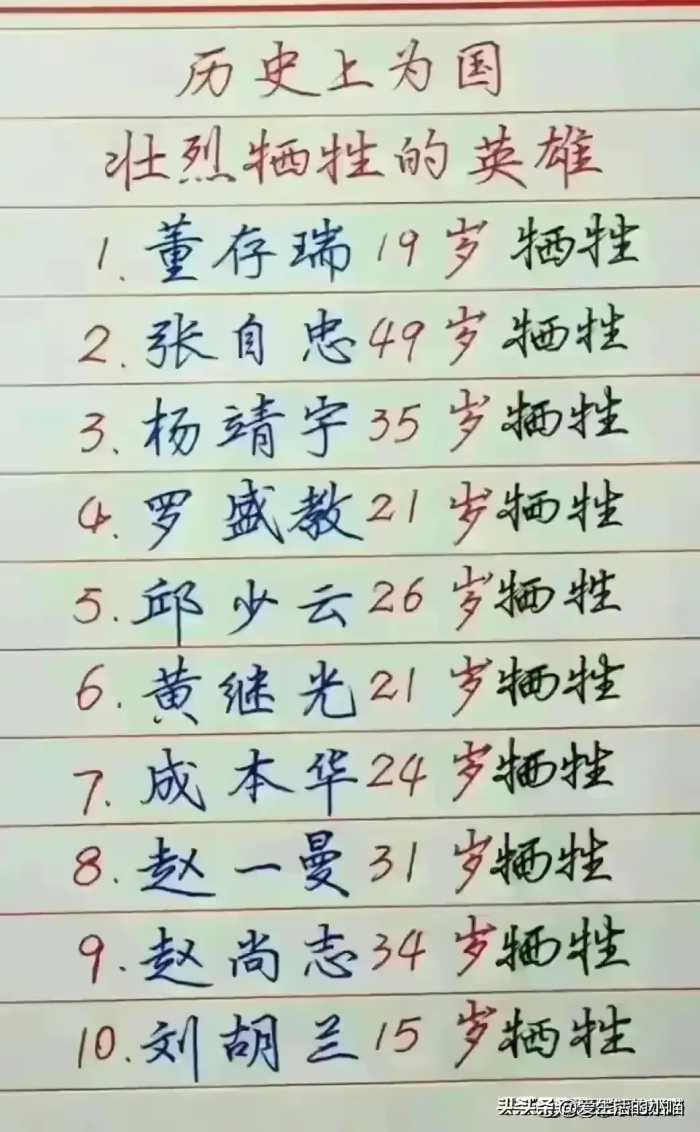 历史上为国
壮烈牺牲的英雄
1. 董存瑞 19岁 牺牲
2. 张自忠 49岁 牺牲
3. 杨靖宇 35岁 牺牲
4. 罗盛教 21岁 牺牲
5. 邱少云 26岁 牺牲
6. 黄继光 21岁 牺牲
7. 成本华 24岁 牺牲
8. 赵一曼 31岁 牺牲
9. 赵尚志 34岁 牺牲
10. 刘胡兰 15岁 牺牲
头条 @爱生活的